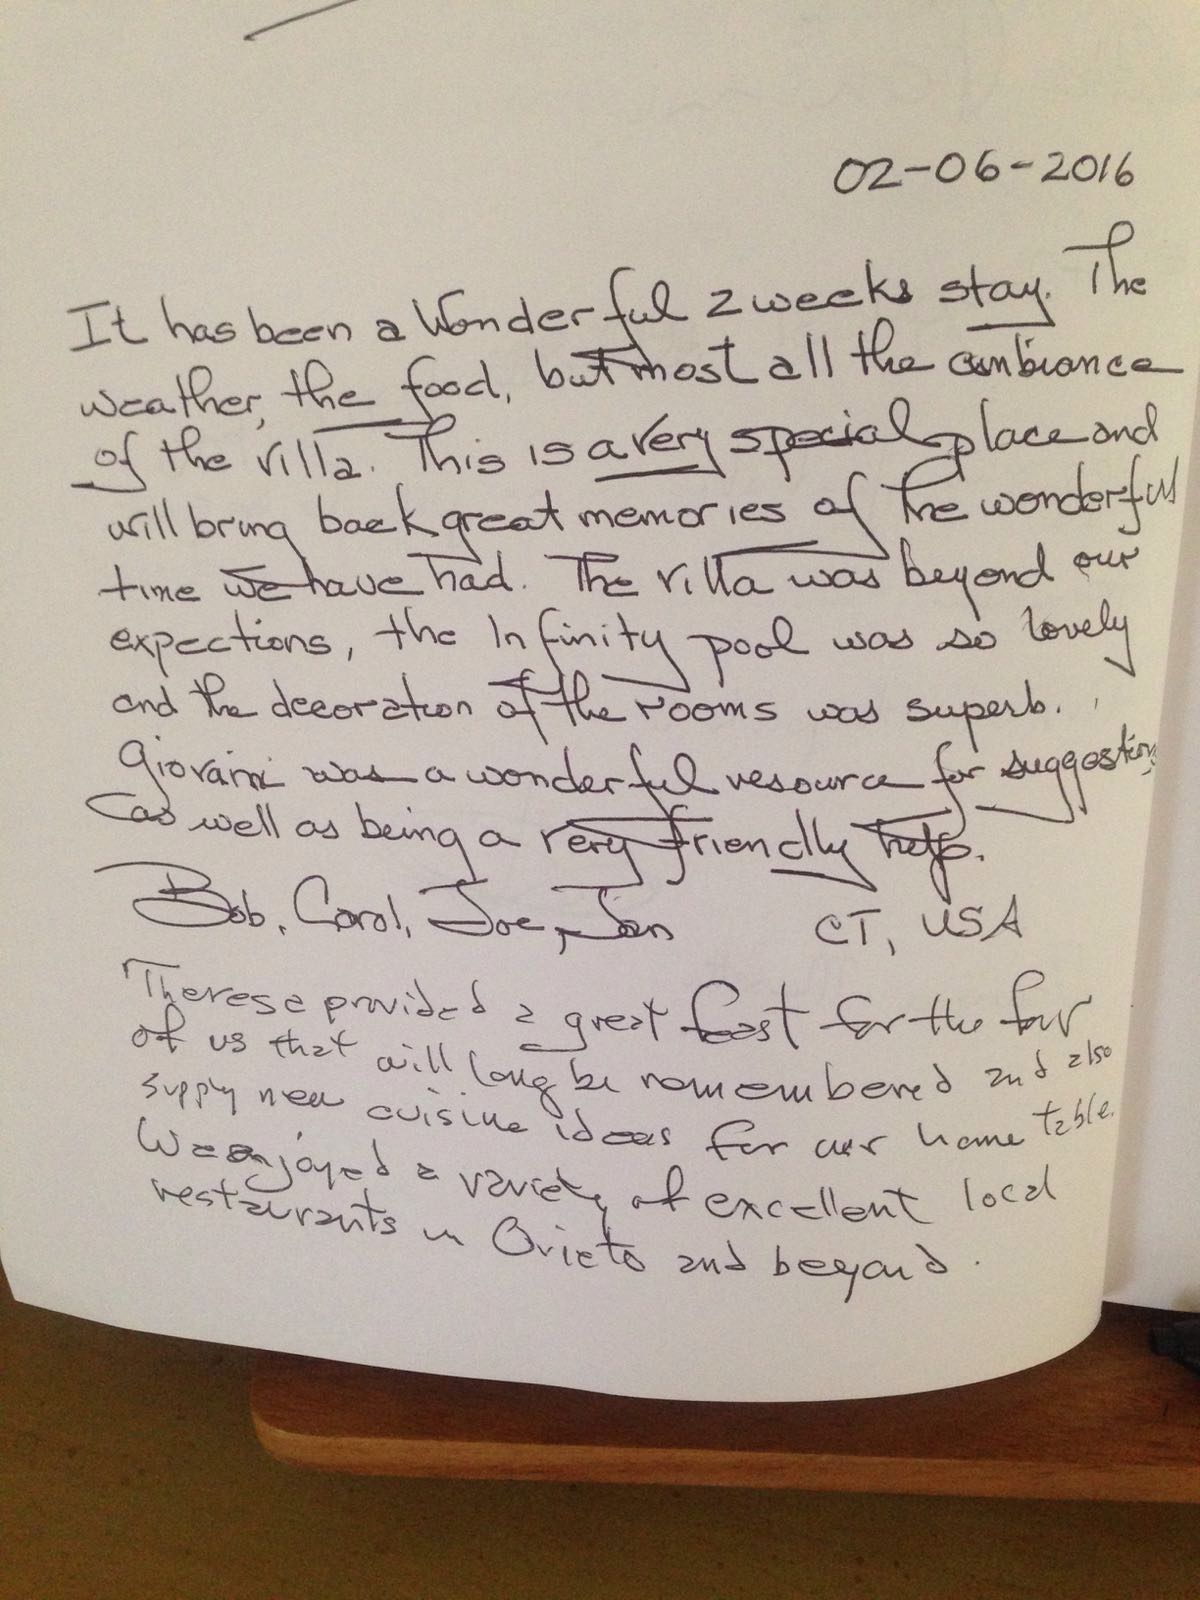 02-06-2016
It has been a wonderful 2 weeks stay. The
weather, the food, but most all the ambiance
of the villa. This is a very special place and
will bring back great memories of the wonderful
time we have had. The villa was beyond our
expections, the Infinity pool was so lovely
and the decoration of the rooms was superb.
Giovanni was a wonderful resource for suggestions
as well as being a very friendly help.
Bob, Carol, Joe, Jan CT, USA
Therese provided a great feast for the four
of us that will long be remembered and also
supply new cuisine ideas for our home table.
We enjoyed a variety of excellent local
restaurants in Orvieto and beyond.